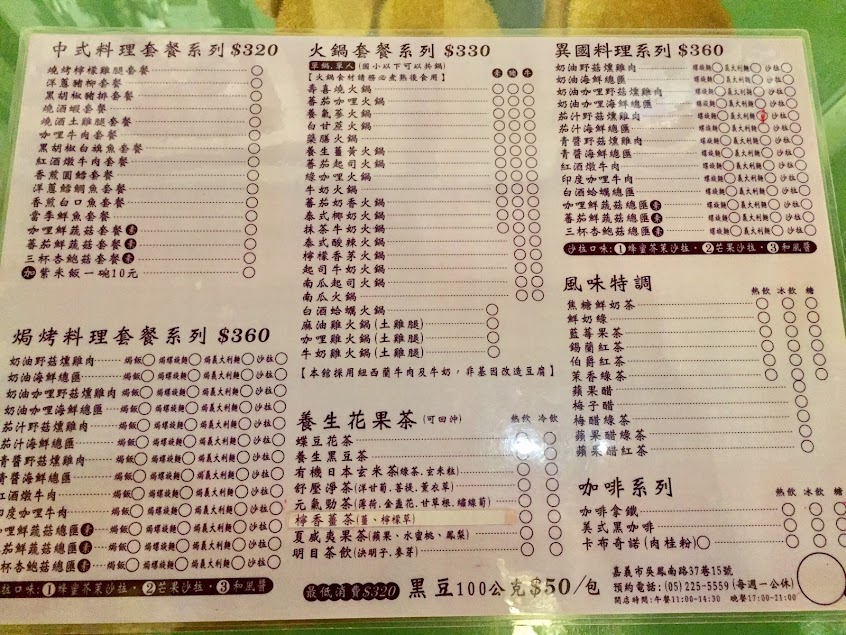 中式料理套餐系列 $320
燒烤檸檬雞腿套餐
洋蔥豬柳套餐
黑胡椒豬排套餐
燒酒蝦套餐
燒酒土雞腿套餐
咖哩牛肉套餐
黑胡椒白旗魚套餐
紅酒燉牛肉套餐
香煎圓鱈套餐
洋蔥鱈鯛魚套餐
香煎白口魚套餐
當季鮮魚套餐
咖哩鮮蔬菇套餐 素
蕃茄鮮蔬菇套餐 素
三杯杏鮑菇套餐 素
加 紫米飯一碗10元
焗烤料理套餐系列 $360
奶油野菇燻雞肉 焗飯 焗螺旋麵 焗義大利麵 沙拉
奶油海鮮總匯 焗飯 焗螺旋麵 焗義大利麵 沙拉
奶油咖哩野菇燻雞肉 焗飯 焗螺旋麵 焗義大利麵 沙拉
奶油咖哩海鮮總匯 焗飯 焗螺旋麵 焗義大利麵 沙拉
茄汁野菇燻雞肉 焗飯 焗螺旋麵 焗義大利麵 沙拉
茄汁海鮮總匯 焗飯 焗螺旋麵 焗義大利麵 沙拉
青醬野菇燻雞肉 焗飯 焗螺旋麵 焗義大利麵 沙拉
青醬海鮮總匯 焗飯 焗螺旋麵 焗義大利麵 沙拉
紅酒燉牛肉 焗飯 焗螺旋麵 焗義大利麵 沙拉
印度咖哩牛肉 焗飯 焗螺旋麵 焗義大利麵 沙拉
咖哩鮮蔬菇總匯 素 焗飯 焗螺旋麵 焗義大利麵 沙拉
蕃茄鮮蔬菇總匯 素 焗飯 焗螺旋麵 焗義大利麵 沙拉
三杯杏鮑菇總匯 素 焗飯 焗螺旋麵 焗義大利麵 沙拉
拉口味:1蜂蜜芥茉沙拉・2芒果沙拉・3和風醬
火鍋套餐系列 $330
單鍋.單人 (國小以下可以共鍋)
【火鍋食材請務必煮熟後食用】 素 豬 牛
壽喜燒火鍋
蕃茄咖哩火鍋
養氣蔘火鍋
白甘蔗火鍋
藥膳火鍋
養生薑黃火鍋
蕃茄起司火鍋
綠咖哩火鍋
牛奶火鍋
蕃茄奶香火鍋
泰式椰奶火鍋
抹茶牛奶火鍋
泰式酸辣火鍋
檸檬香茅火鍋
起司牛奶火鍋
南瓜起司火鍋
南瓜火鍋
白酒蛤蠣火鍋
麻油雞火鍋(土雞腿)
咖哩雞火鍋(土雞腿)
牛奶雞火鍋(土雞腿)
【本館採用紐西蘭牛肉及牛奶,非基因改造豆腐】
養生花果茶 (可回沖) 熱飲 冷飲
蝶豆花茶
養生黑豆茶
有機日本玄米茶(綠茶.玄米粒)
舒壓淨茶(洋甘菊.菩提.薰衣草)
元氣勁茶(薄荷.金盞花.甘草根.繡線菊)
檸香薑茶(薑、檸檬草)
夏威夷果茶(蘋果、水蜜桃、鳳梨)
明目茶飲(決明子.麥芽)
最低消費$320 黑豆100公克$50/包
異國料理系列 $360
奶油野菇燻雞肉 螺旋麵 義大利麵 沙拉
奶油海鮮總匯 螺旋麵 義大利麵 沙拉
奶油咖哩野菇燻雞肉 螺旋麵 義大利麵 沙拉
奶油咖哩海鮮總匯 螺旋麵 義大利麵 沙拉
茄汁野菇燻雞肉 螺旋麵 義大利麵 沙拉
茄汁海鮮總匯 螺旋麵 義大利麵 沙拉
青醬野菇燻雞肉 螺旋麵 義大利麵 沙拉
青醬海鮮總匯 螺旋麵 義大利麵 沙拉
紅酒燉牛肉 螺旋麵 義大利麵 沙拉
印度咖哩牛肉 螺旋麵 義大利麵 沙拉
白酒蛤蠣總匯 螺旋麵 義大利麵 沙拉
咖哩鮮蔬菇總匯 素 螺旋麵 義大利麵 沙拉
蕃茄鮮蔬菇總匯 素 螺旋麵 義大利麵 沙拉
三杯杏鮑菇總匯 素 螺旋麵 義大利麵 沙拉
沙拉口味:1蜂蜜芥茉沙拉・2芒果沙拉・3和風醬
風味特調 熱飲 冰飲 糖
焦糖鮮奶茶
鮮奶綠
藍莓果茶
錫蘭紅茶
伯爵紅茶
茉香綠茶
蘋果醋
梅子醋
梅醋綠茶
蘋果醋綠茶
蘋果醋紅茶
咖啡系列 熱飲 冰飲 糖
咖啡拿鐵
美式黑咖啡
卡布奇諾(肉桂粉)
嘉義市吳鳳南路37巷15號
預約電話:(05)225-5559(每週一公休)
開店時間:午餐11:00-14:30 晚餐17:00-21:00